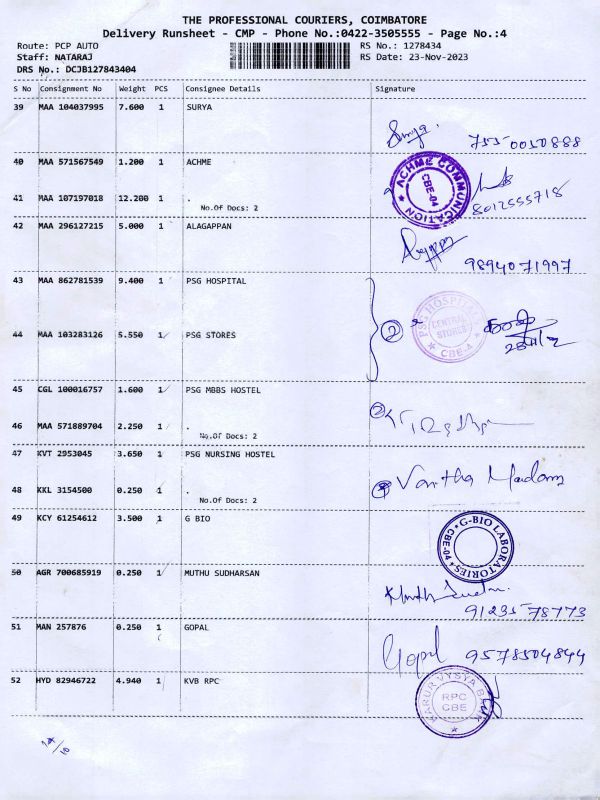 THE PROFESSIONAL COURIERS, COIMBATORE
Delivery Runsheet - CMP - Phone No.:0422-3505555 - Page No.:4
Route: PCP AUTO RS No.: 1278434
Staff: NATARAJ RS Date: 23-Nov-2023
DRS No.: DCJB127843404
S No Consignment No Weight PCS Consignee Details Signature
39 MAA 104037995 7.600 1 SURYA
Surya. 7550050888
40 MAA 571567549 1.200 1 ACHME
ACHME COMMUNICATION CBE-04
41 MAA 107197018 12.200 1 .
8012555718
No.Of Docs: 2
42 MAA 296127215 5.000 1 ALAGAPPAN
9894071997
43 MAA 862781539 9.400 1 PSG HOSPITAL
PSG HOSPITALS CENTRAL STORES CBE-4
2
44 MAA 103283126 5.550 1 PSG STORES
45 CGL 100016757 1.600 1 PSG MBBS HOSTEL
2
46 MAA 571889704 2.250 1 .
No.Of Docs: 2
47 KVT 2953045 3.650 1 PSG NURSING HOSTEL
Vantha Madam
48 KKL 3154500 0.250 1 .
No.Of Docs: 2
49 KCY 61254612 3.500 1 G BIO
G-BIO LABORATORIES CBE-04
50 AGR 700685919 0.250 1 MUTHU SUDHARSAN
91235 78773
51 MAN 257876 0.250 1 GOPAL
Gopal 9578504844
52 HYD 82946722 4.940 1 KVB RPC
KARUR VYSYA BANK RPC CBE
14/10